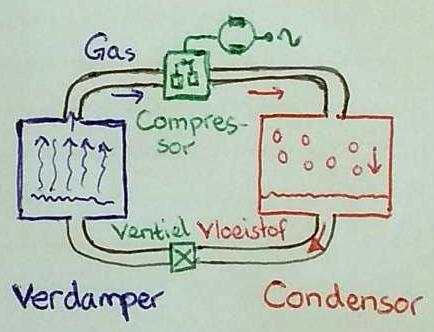 Gas
Compres-
sor
Ventiel Vloeistof
Verdamper
Condensor